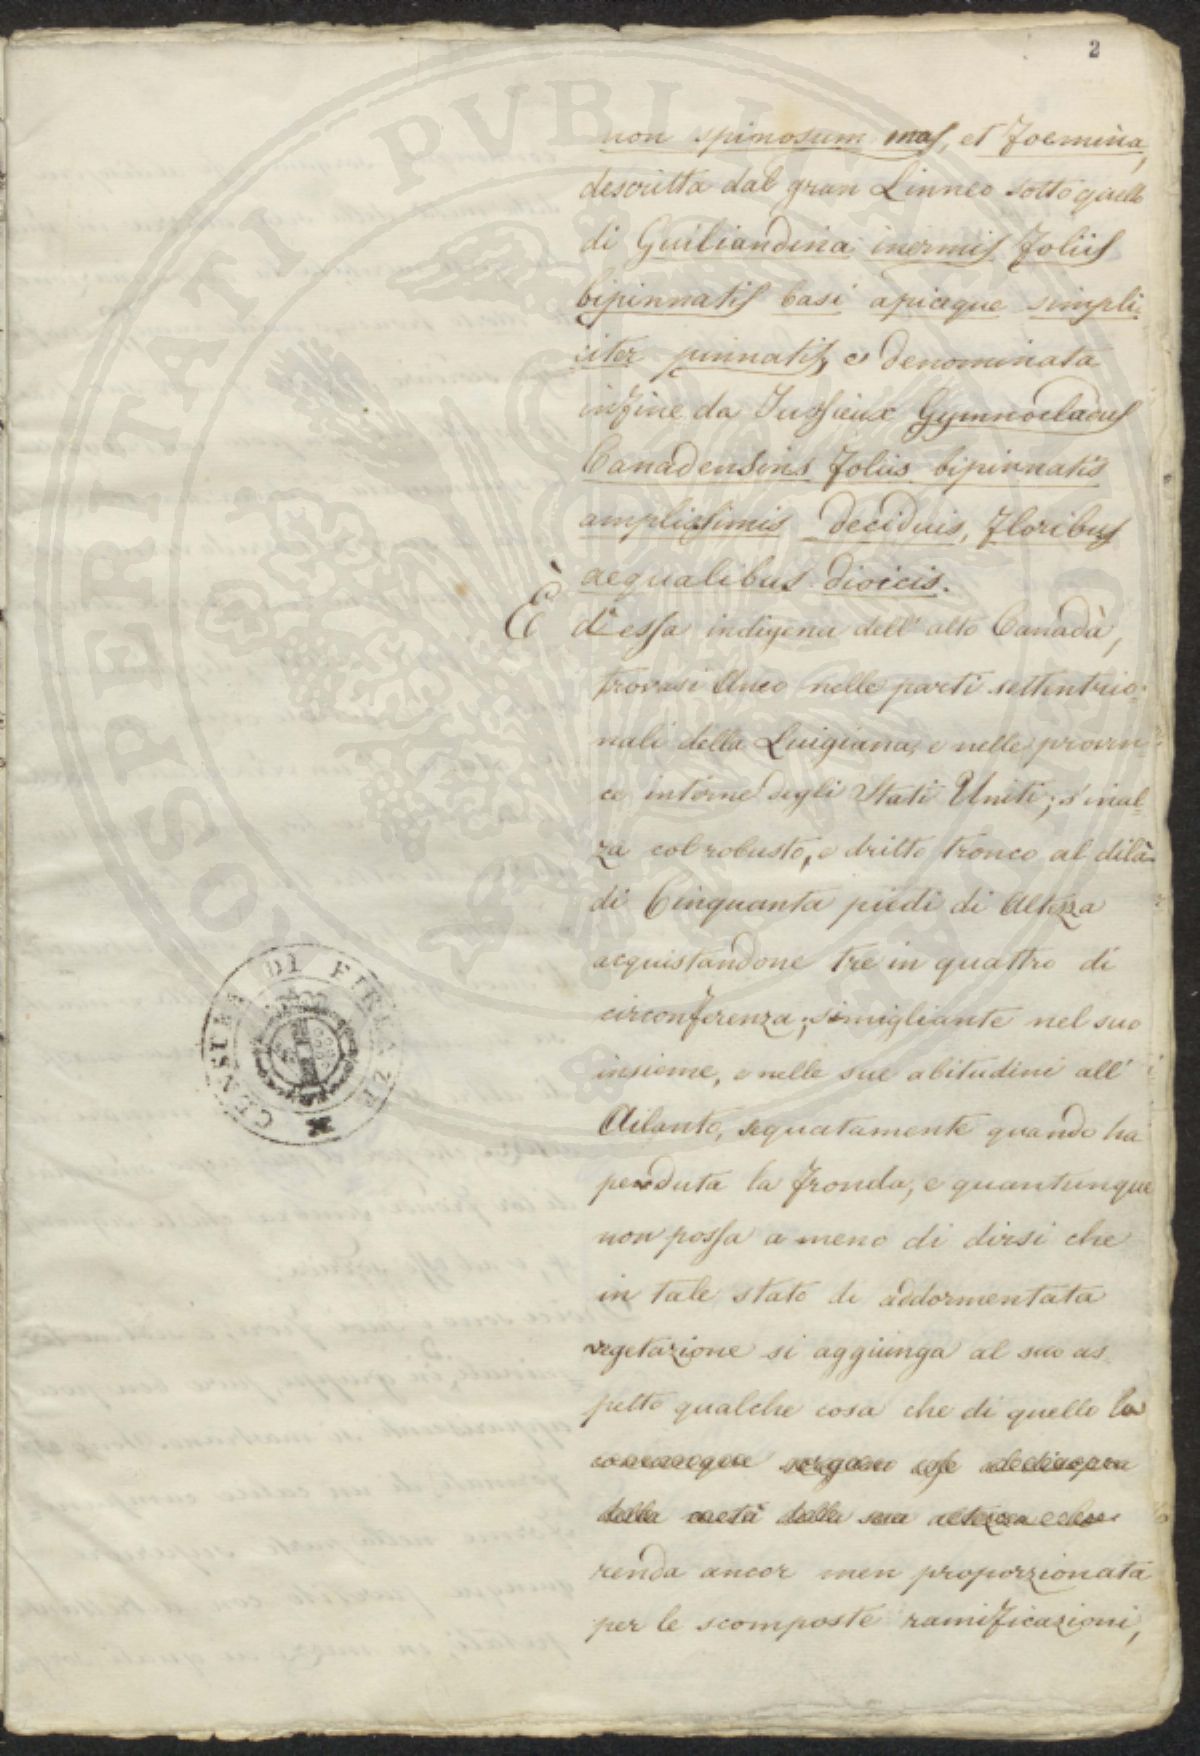 2
non spinosum mas, et Foemina,
descritta dal gran Linneo sotto quello
di Guiliandina inermis Foliis
bipinnatis basi apiceque simpli-
citer pinnatis, e denominata
infine da Jussieux Gymnocladus
Canadensins Foliis bipinnatis
amplissimis deciduis, Floribus
aequalibus dioicis.
È di essa indigena dell' alto Canadà,
trovasi Anco nelle parti settentrio-
nali della Luigiana, e nelle provin-
ce interne degli Stati Uniti; s'inal-
za col robusto, e dritto tronco al dilà
di Cinquanta piedi di Altezza
acquistandone tre in quattro di
circonferenza; simigliante nel suo
insieme, e nelle sue abitudini all'
Ailanto, seguatamente quando ha
perduta la fronda, e quantunque
non possa a meno di dirsi che
in tale stato di addormentata
vegetazione si aggiunga al suo as-
petto qualche cosa che di quello la
della metà della sua altezza e che
renda ancor men proporzionata
per le scomposte ramificazioni,
CENSIRE DI FIRENZE
PROSPERITATI PVBLICAE